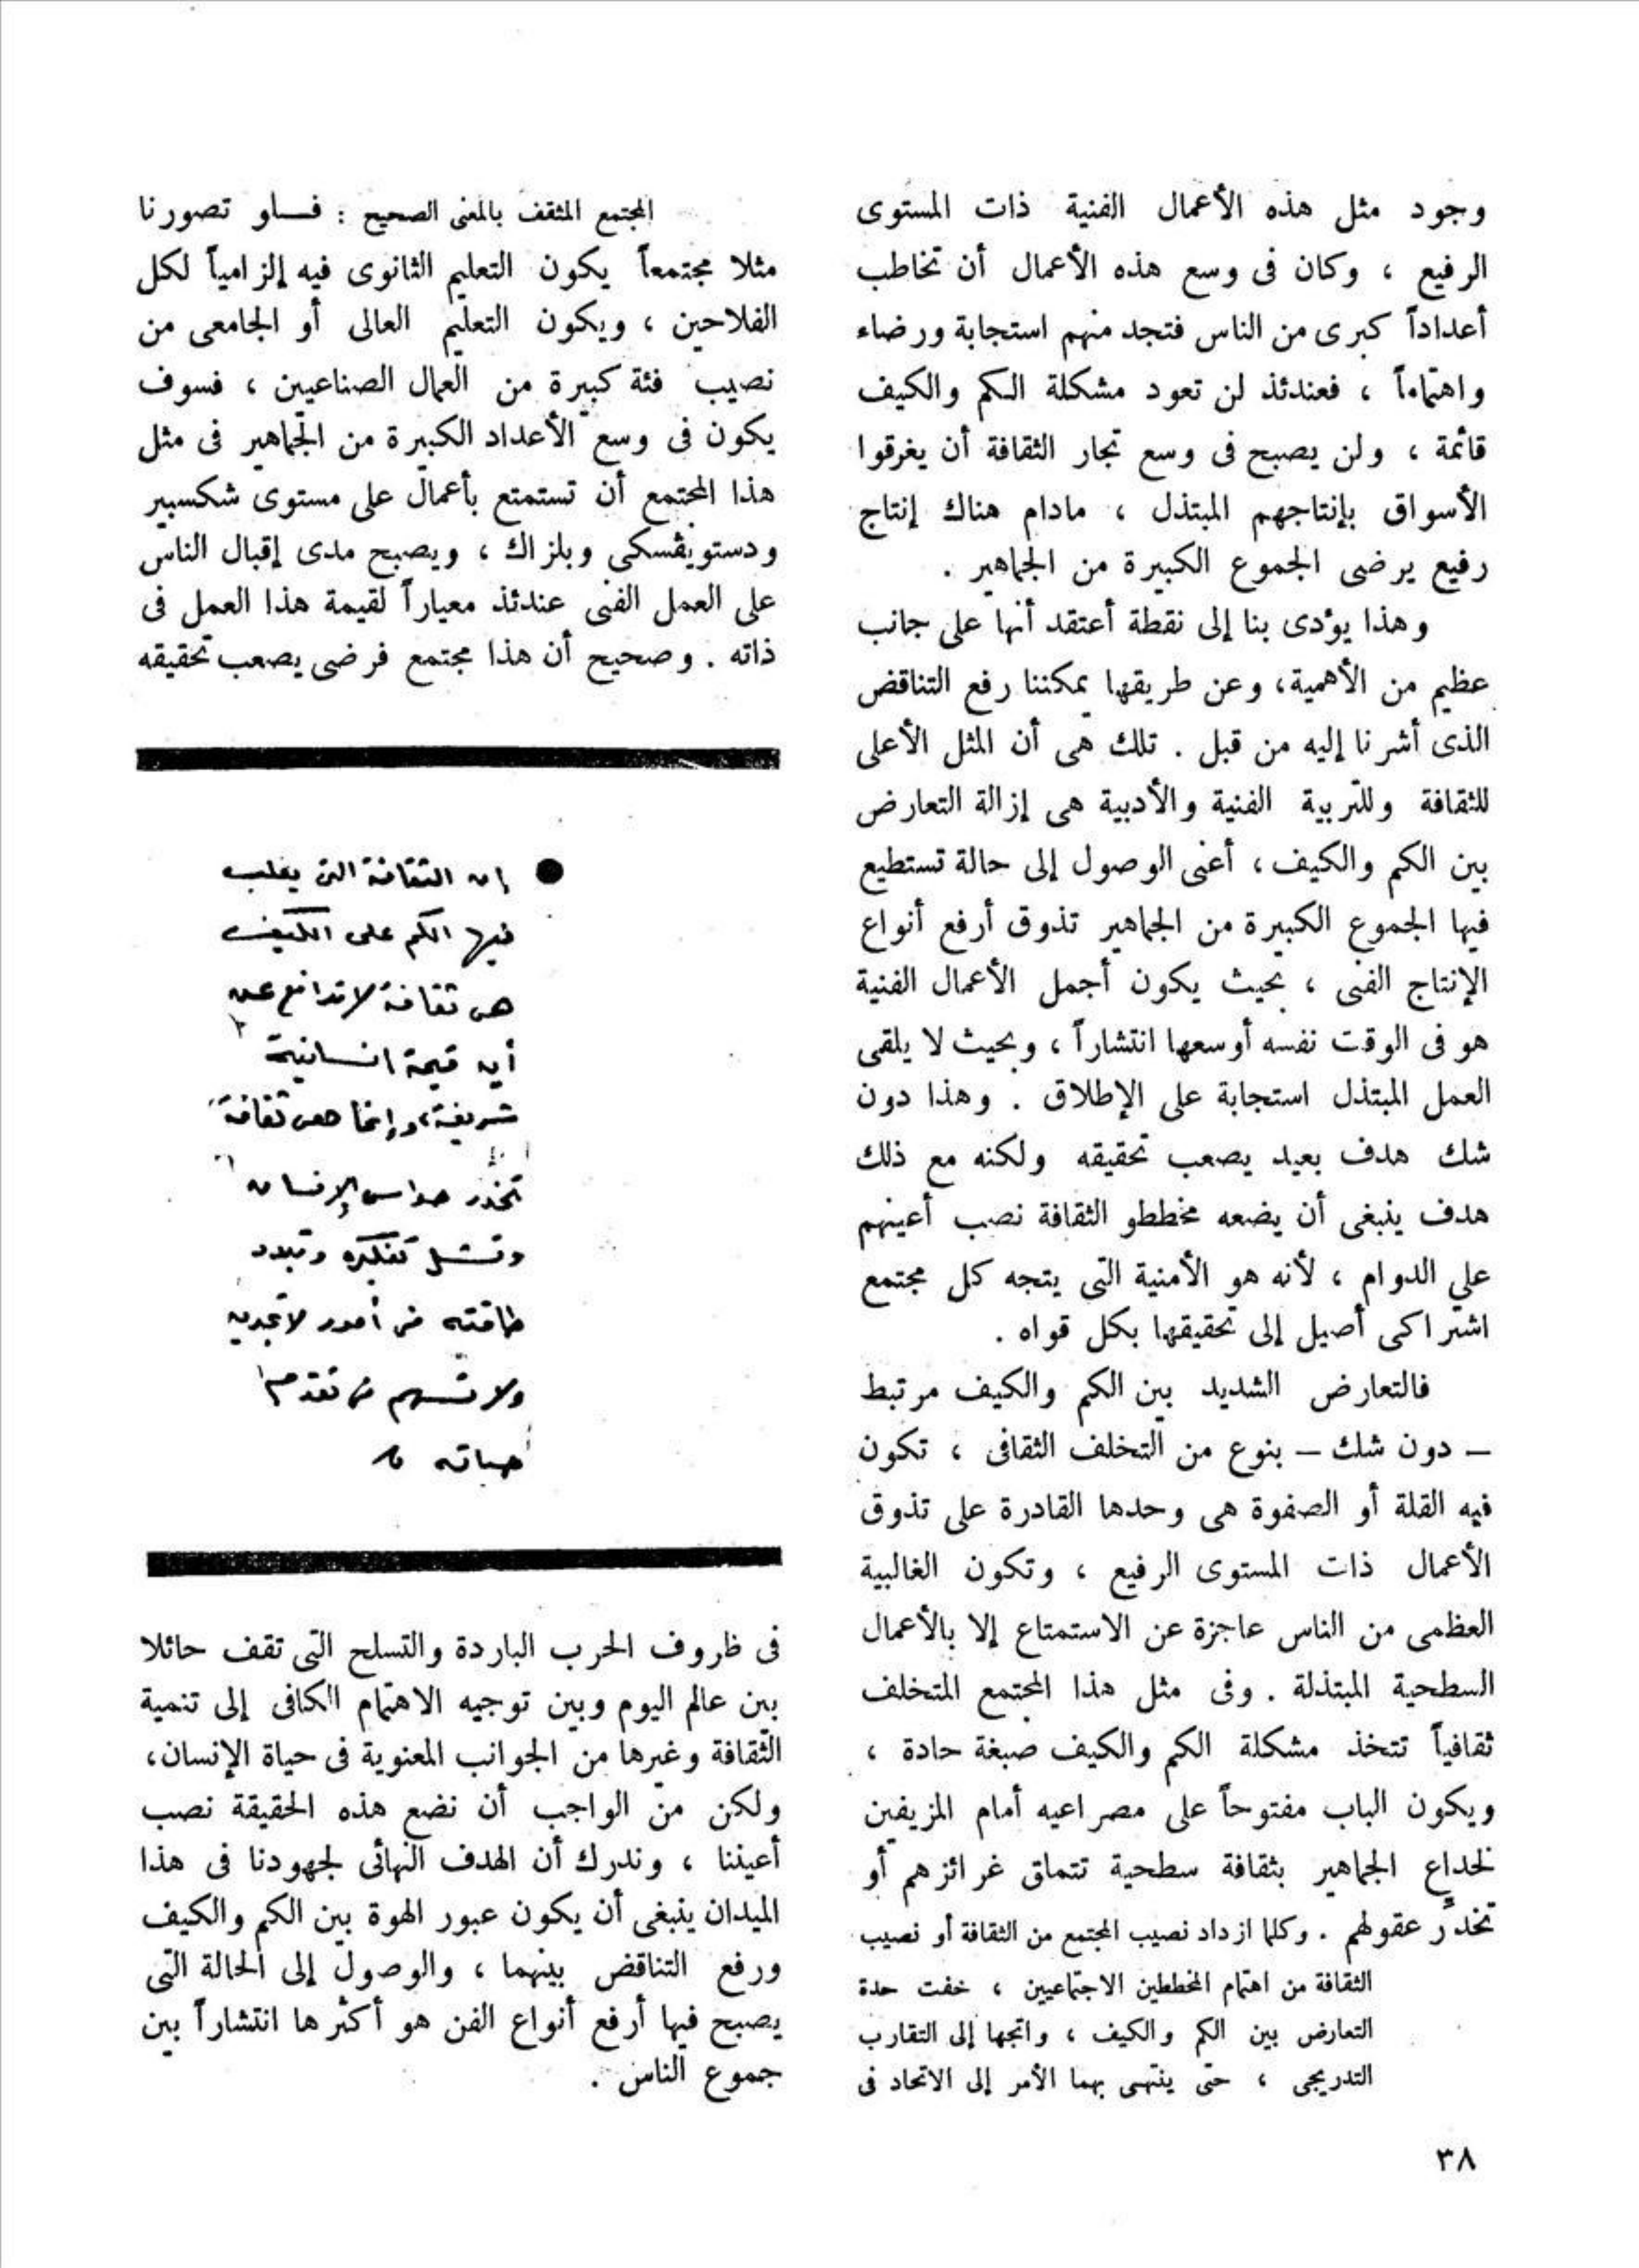 وجود مثل هذه الأعمال الفنية ذات المستوى
الرفيع ، وكان فى وسع هذه الأعمال أن تخاطب
أعداداً كبرى من الناس فتجد منهم استجابة ورضاء
واهتماماً ، فعندئذ لن تعود مشكلة الكم والكيف
قائمة ، ولن يصبح فى وسع تجار الثقافة أن يغرقوا
الأسواق بإنتاجهم المبتذل ، مادام هناك إنتاج
رفيع يرضى الجموع الكبيرة من الجماهير .
وهذا يؤدى بنا إلى نقطة أعتقد أنها على جانب
عظيم من الأهمية، وعن طريقها يمكننا رفع التناقض
الذى أشرنا إليه من قبل . تلك هى أن المثل الأعلى
للثقافة وللتربية الفنية والأدبية هى إزالة التعارض
بين الكم والكيف ، أعنى الوصول إلى حالة تستطيع
فيها الجموع الكبيرة من الجماهير تذوق أرفع أنواع
الإنتاج الفنى ، بحيث يكون أجمل الأعمال الفنية
هو فى الوقت نفسه أوسعها انتشاراً ، وبحيث لا يلقى
العمل المبتذل استجابة على الإطلاق . وهذا دون
شك هدف بعيد يصعب تحقيقه ولكنه مع ذلك
هدف ينبغى أن يضعه مخططو الثقافة نصب أعينهم
على الدوام ، لأنه هو الأمنية التى يتجه كل مجتمع
اشتراكى أصيل إلى تحقيقها بكل قواه .
فالتعارض الشديد بين الكم والكيف مرتبط
– دون شك – بنوع من التخلف الثقافى ، تكون
فيه القلة أو الصفوة هى وحدها القادرة على تذوق
الأعمال ذات المستوى الرفيع ، وتكون الغالبية
العظمى من الناس عاجزة عن الاستمتاع إلا بالأعمال
السطحية المبتذلة . وفى مثل هذا المجتمع المتخلف
ثقافياً تتخذ مشكلة الكم والكيف صبغة حادة ،
ويكون الباب مفتوحاً على مصراعيه أمام المزيفين
لخداع الجماهير بثقافة سطحية تتملق غرائزهم أو
تخدِّر عقولهم . وكلما ازداد نصيب المجتمع من الثقافة أو نصيب
الثقافة من اهتمام المخططين الاجتماعيين ، خفت حدة
التعارض بين الكم والكيف ، واتجها إلى التقارب
التدريجى ، حتى ينتهى بهما الأمر إلى الاتحاد فى
المجتمع المثقف بالمعنى الصحيح : فلو تصورنا
مثلا مجتمعاً يكون التعليم الثانوى فيه إلزامياً لكل
الفلاحين ، ويكون التعليم العالى أو الجامعى من
نصيب فئة كبيرة من العمال الصناعيين ، فسوف
يكون فى وسع الأعداد الكبيرة من الجماهير فى مثل
هذا المجتمع أن تستمتع بأعمال على مستوى شكسبير
ودستويفسكى وبلزاك ، ويصبح مدى إقبال الناس
على العمل الفنى عندئذ معياراً لقيمة هذا العمل فى
ذاته . وصحيح أن هذا مجتمع فرضى يصعب تحقيقه
● إن الثقافة التى يغلب
فيها الكم على الكيف
هى ثقافة لا تدافع عن
أية قيمة انسانية
شريفة، وإنما هى ثقافة
تخدر حواس الإنسان
وتشل تفكيره وتبدد
طاقته فى أمور لا تجديه
ولا تسهم فى تقدم
حياته
فى ظروف الحرب الباردة والتسلح التى تقف حائلا
بين عالم اليوم وبين توجيه الاهتمام الكافى إلى تنمية
الثقافة وغيرها من الجوانب المعنوية فى حياة الإنسان،
ولكن من الواجب أن نضع هذه الحقيقة نصب
أعيننا ، وندرك أن الهدف النهائى لجهودنا فى هذا
الميدان ينبغى أن يكون عبور الهوة بين الكم والكيف
ورفع التناقض بينهما ، والوصول إلى الحالة التى
يصبح فيها أرفع أنواع الفن هو أكثرها انتشاراً بين
جموع الناس .
٣٨